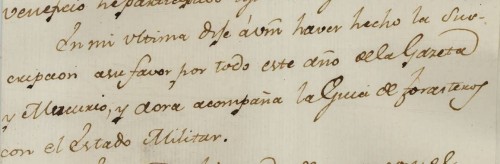 veneficio
En mi ultima dije á vm̃ haver hecho la Sus-
cripcion a su favor por todo este año de la Gazeta
y Mercurio, y aora acompaña la Guia de forasteros
con el Estado Militar.